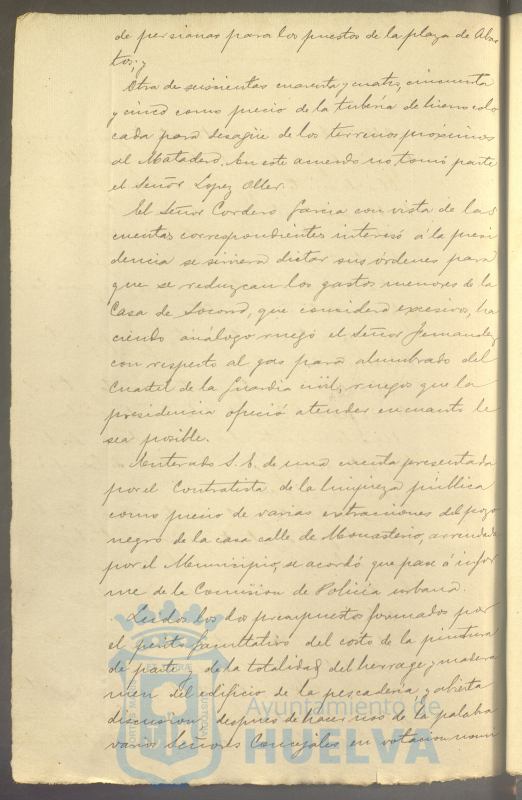 de persianas para los puestos de la plaza de Abas
tos; y
Otra de seiscientas cuarenta y cuatro, cincuenta
y cinco como precio de la tubería de hierro colo
cada para desagüe de los terrenos próximos
al Matadero. En este acuerdo no tomó parte
el Señor Lopez Oller.
El Señor Cordero Garcia con vista de las
cuentas correspondientes interesó á la presi
dencia se sirviera dictar sus órdenes para
que se reduzcan los gastos menores de la
Casa de Socorro, que considera excesivos, ha
ciendo análogo ruego el Señor Fernandez
con respecto al gas para alumbrado del
Cuartel de la Guardia civil, ruegos que la
presidencia ofreció atender en cuanto le
sea posible.
Enterado S. E. de una cuenta presentada
por el Contratista de la limpieza pública
como precio de varias extracciones del pozo
negro de la casa calle de Monasterio, arrendada
por el Municipio, se acordó que pase á infor
me de la Comision de Policía urbana.
Leidos los dos presupuestos formados por
el perito facultativo del costo de la pintura
de parte y de la totalidad del herrage y madera
men del edificio de la pescaderia, y abierta
discusion, despues de hacer uso de la palabra
varios Señores Concejales, en votacion nomi
Ayuntamiento de
HUELVA